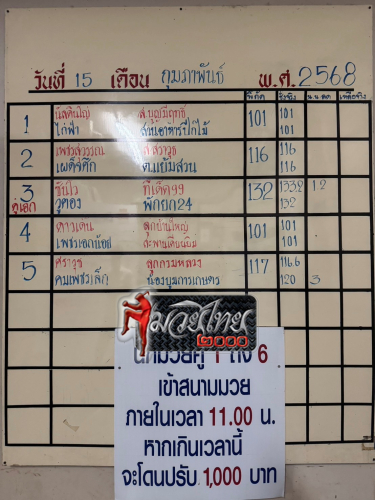 วันที่ 15 เดือน กุมภาพันธ์ พ.ศ. 2568
พิกัด ชั่งจริง น.น.ลด เหลือจริง
1 ส.บุญมีฤทธิ์ 101 101
ไก่ฟ้า สวนอาหารปีกไม้ 101
2 116 116
ต้นยิ้มสวน 116
3 ทีเด็ด99 132 133.2 1.2
คู่เอก วูตอง พักยก24 132
4 ดาวเด่น ลูกย่าใหญ่ 101 101
เพชรเอกน้อย สะพานเดือนยิ้ม 101
5 ศราวุธ 117 116.6
คมเพชรเล็ก น้องบูมการเกษตร 120 3
มวยไทย
๒๐๐๐
นักมวยคู่ 1 ถึง 6
เข้าสนามมวย
ภายในเวลา 11.00 น.
หากเกินเวลานี้
จะโดนปรับ 1,000 บาท